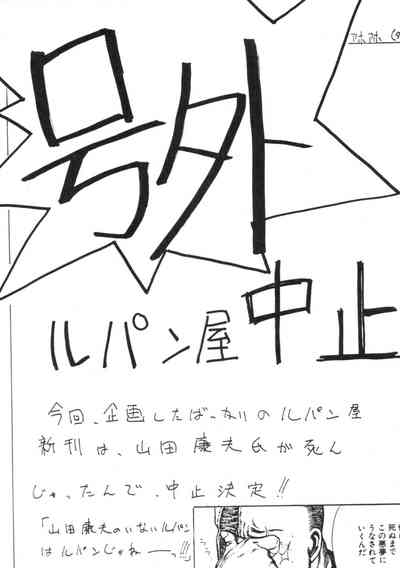 号外
ルパン屋中止
今回、企画したばっかりのルパン屋
新刊は、山田康夫氏が死ん
じゃったんで、中止決定!!
「山田康夫のいないルパン
はルパンじゃねーっ!!」
死ぬまで
この悪夢に
うなされて
いくんだ